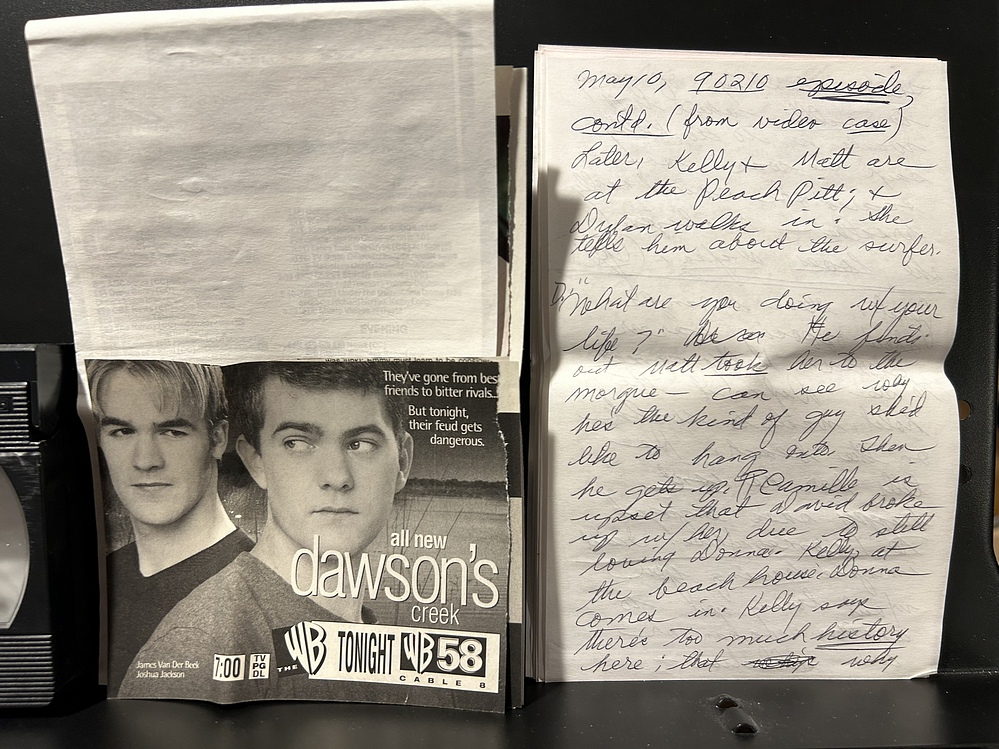 EVENING
They've gone from best
friends to bitter rivals...
But tonight,
their feud gets
dangerous.
all new
dawson's
creek
James Van Der Beek
Joshua Jackson
7:00
TV
PG
DL
THE WB
TONIGHT
WB 58
CABLE 8
May 10, 90210 episode,
contd. (from video case)
Later, Kelly + Matt are
at the Peach Pitt; +
Dylan walks in. She
tells him about the surfer.
D: "What are you doing w/ your
life?" He finds
out Matt took her to the
morgue - can see why
he's the kind of guy she'd
like to hang onto. Then
he gets up. Camille is
upset that David broke
up w/ her due to still
loving Donna. Kelly at
the beach house. Donna
comes in. Kelly says
there's too much history
here; that why